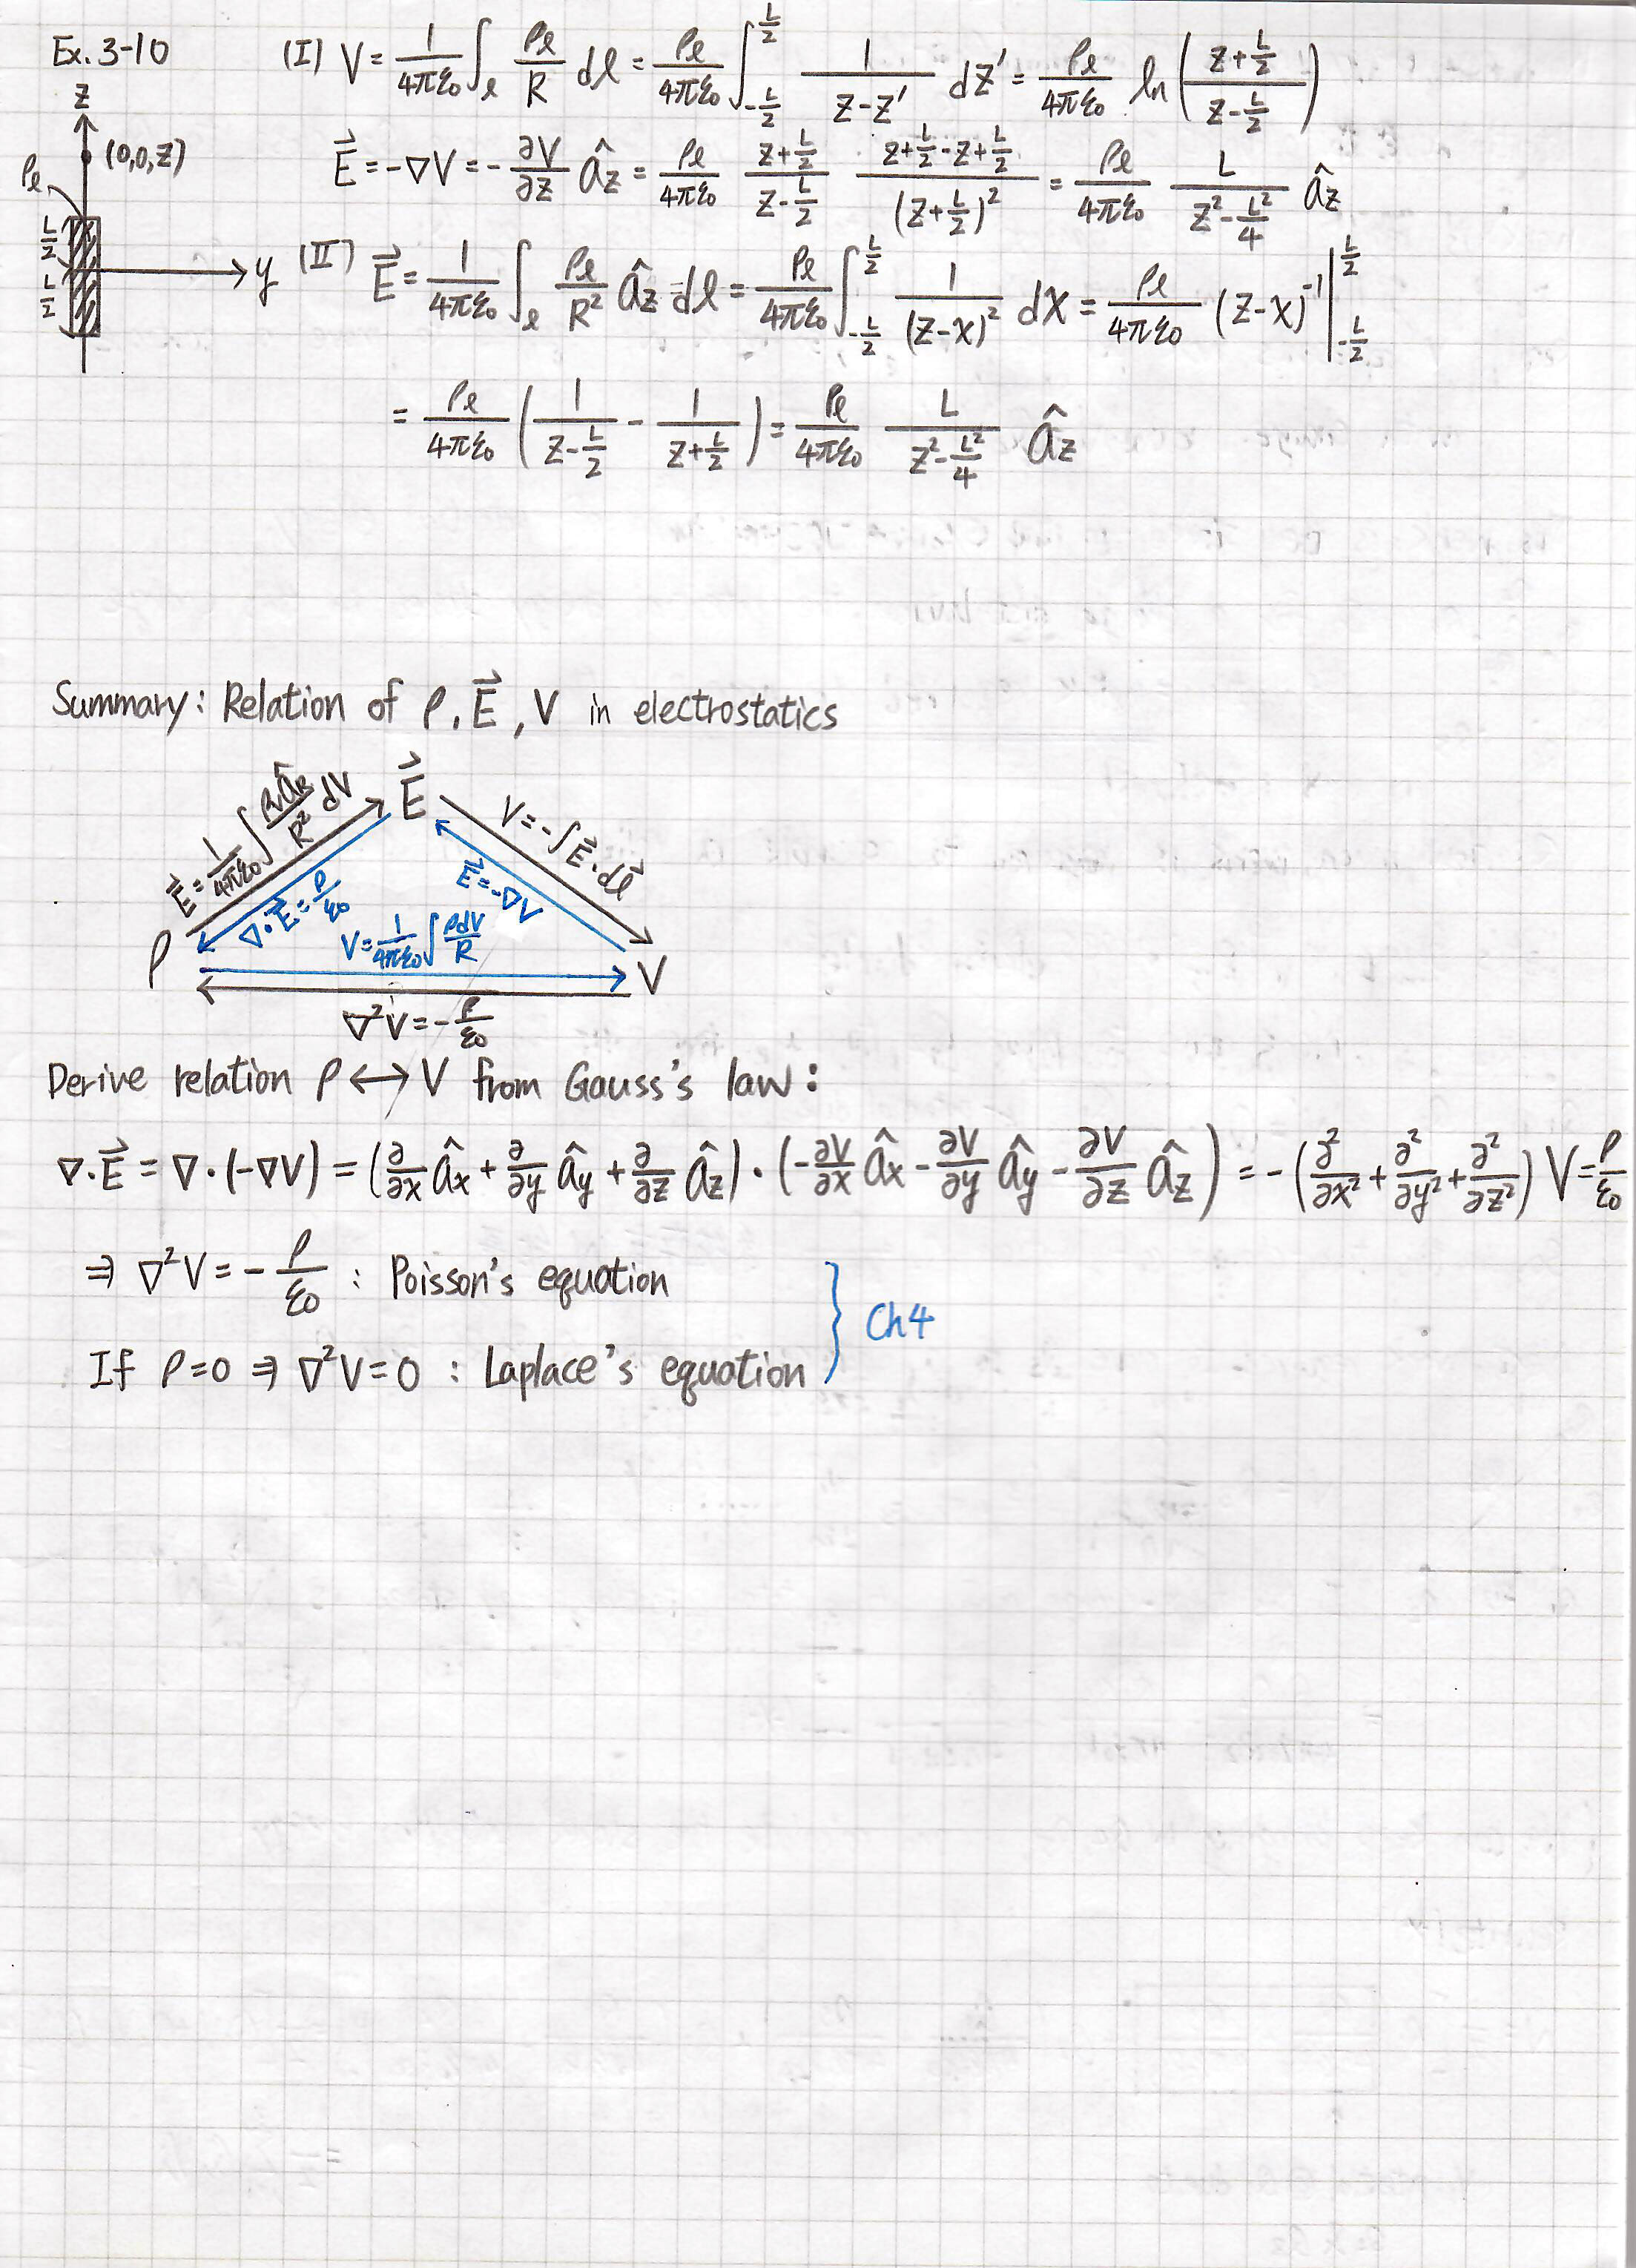 Ex. 3-10
(I) V = \frac{1}{4πε₀} ∫_ℓ \frac{ρ_ℓ}{R} dℓ = \frac{ρ_ℓ}{4πε₀} ∫_{-\frac{L}{2}}^{\frac{L}{2}} \frac{1}{z-z'} dz' = \frac{ρ_ℓ}{4πε₀} ln(\frac{z+\frac{L}{2}}{z-\frac{L}{2}})
z
(0,0,z)
ρ_ℓ
\frac{L}{2}
\frac{L}{2}
y
\vec{E} = -∇V = -\frac{∂V}{∂z} \hat{a}_z = \frac{ρ_ℓ}{4πε₀} \frac{z+\frac{L}{2}}{z-\frac{L}{2}} \frac{z+\frac{L}{2}-z+\frac{L}{2}}{(z+\frac{L}{2})^2} = \frac{ρ_ℓ}{4πε₀} \frac{L}{z^2-\frac{L^2}{4}} \hat{a}_z
(II) \vec{E} = \frac{1}{4πε₀} ∫_ℓ \frac{ρ_ℓ}{R^2} \hat{a}_z dℓ = \frac{ρ_ℓ}{4πε₀} ∫_{-\frac{L}{2}}^{\frac{L}{2}} \frac{1}{(z-x)^2} dx = \frac{ρ_ℓ}{4πε₀} (z-x)^{-1} |_{-\frac{L}{2}}^{\frac{L}{2}}
= \frac{ρ_ℓ}{4πε₀} (\frac{1}{z-\frac{L}{2}} - \frac{1}{z+\frac{L}{2}}) = \frac{ρ_ℓ}{4πε₀} \frac{L}{z^2-\frac{L^2}{4}} \hat{a}_z
Summary: Relation of ρ, \vec{E}, V in electrostatics
\vec{E}
\vec{E} = \frac{1}{4πε₀} ∫ \frac{ρ_v \hat{a}_R}{R^2} dV
V = -∫ \vec{E}·d\vec{ℓ}
∇·\vec{E} = \frac{ρ}{ε₀}
\vec{E} = -∇V
V = \frac{1}{4πε₀} ∫ \frac{ρdV}{R}
ρ
V
∇²V = -\frac{ρ}{ε₀}
Derive relation ρ ↔ V from Gauss's law:
∇·\vec{E} = ∇·(-∇V) = (\frac{∂}{∂x} \hat{a}_x + \frac{∂}{∂y} \hat{a}_y + \frac{∂}{∂z} \hat{a}_z)·(-\frac{∂V}{∂x} \hat{a}_x - \frac{∂V}{∂y} \hat{a}_y - \frac{∂V}{∂z} \hat{a}_z) = -(\frac{∂^2}{∂x^2} + \frac{∂^2}{∂y^2} + \frac{∂^2}{∂z^2}) V = \frac{ρ}{ε₀}
⇒ ∇²V = -\frac{ρ}{ε₀} : Poisson's equation
Ch4
If ρ=0 ⇒ ∇²V=0 : Laplace's equation